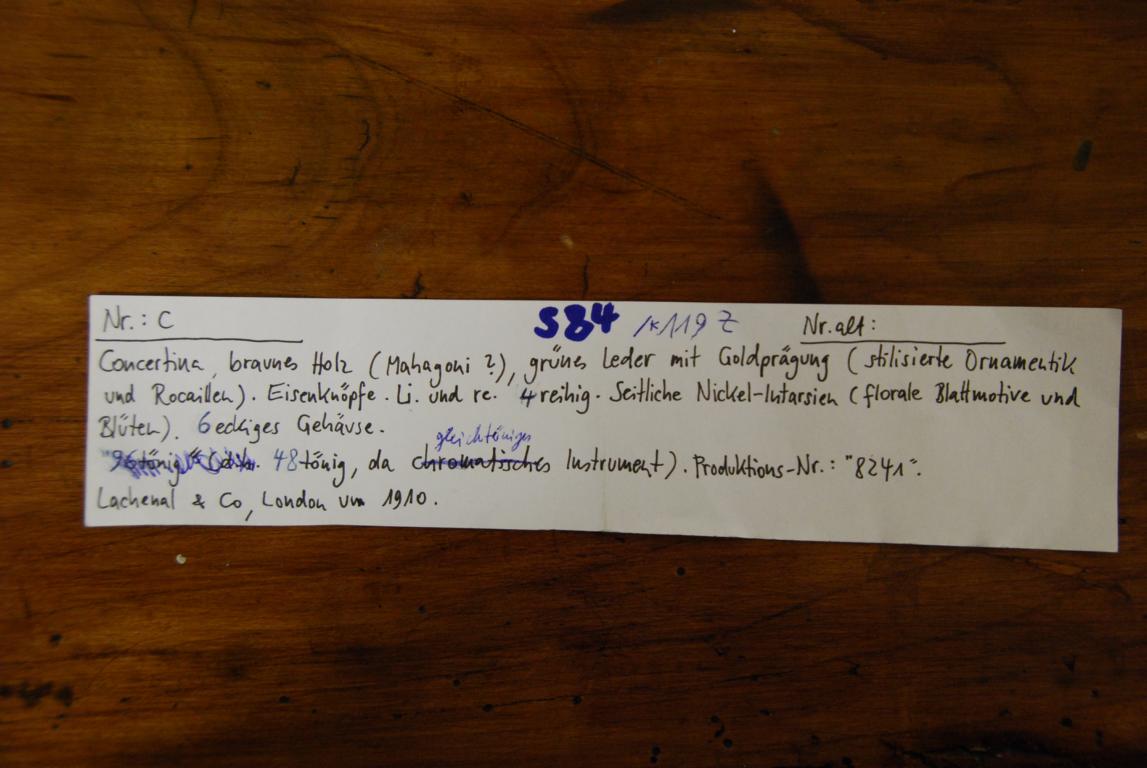 Nr.: C S84 K119 Z Nr. alt:
Concertina, braunes Holz (Mahagoni ?), grünes Leder mit Goldprägung (stilisierte Ornamentik
und Rocaillen). Eisenknöpfe. Li. und re. 4reihig. Seitliche Nickel-Intarsien (florale Blattmotive und
Blüten). 6eckiges Gehäuse.
gleichtöniges
"96tönig" (d.h. 48tönig, da chromatisches Instrument). Produktions-Nr.: "8241".
Lachenal & Co, London um 1910.